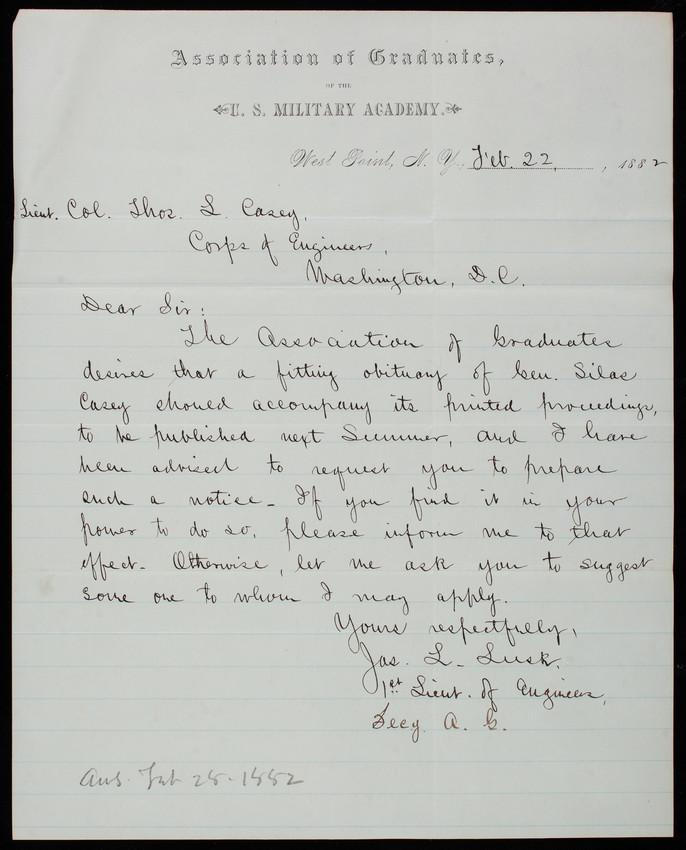 Association of Graduates,
OF THE
U. S. MILITARY ACADEMY.
West Point, N. Y., Feb. 22, 1882
Lieut. Col. Thos. L. Casey,
Corps of Engineers,
Washington, D.C.
Dear Sir:
The Association of Graduates
desires that a fitting obituary of Gen. Silas
Casey should accompany its printed proceedings,
to be published next Summer, and I have
been advised to request you to prepare
such a notice. If you find it in your
power to do so, please inform me to that
effect. Otherwise, let me ask you to suggest
some one to whom I may apply.
Yours respectfully,
Jas. L. Lusk,
1st Lieut. of Engineers,
Secy. A. G.
Ans. Feb 28-1882